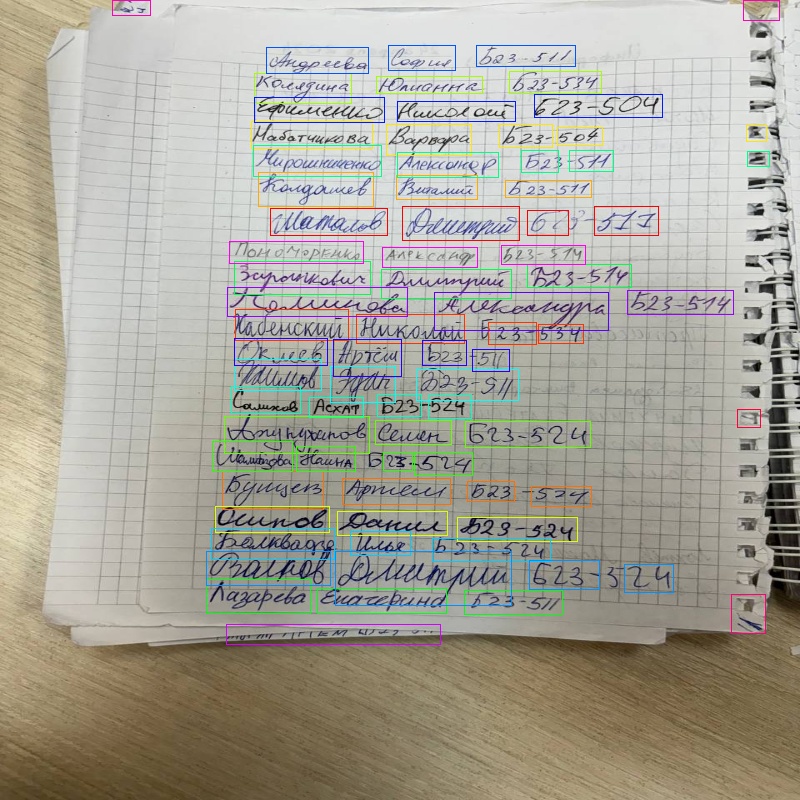 Андреева София Б23-511
Колядина Юлианна Б23-534
Ефименко Николай Б23-504
Набатчикова Варвара Б23-504
Мирошниченко Александр Б23-511
Колдашев Виталий Б23-511
Шаталов Дмитрий Б23-511
Пономаренко Александр Б23-514
Дмитрий Б23-514
Александра Б23-514
Хабенский Николай Б23-534
Окунев Артём Б23-511
Б23-511
Салихов Асхат Б23-524
Семен Б23-524
Б23-524
Артем Б23-524
Осипов Данил Б23-524
Илья Б23-524
Дмитрий Б23-524
Лазарева Екатерина Б23-511